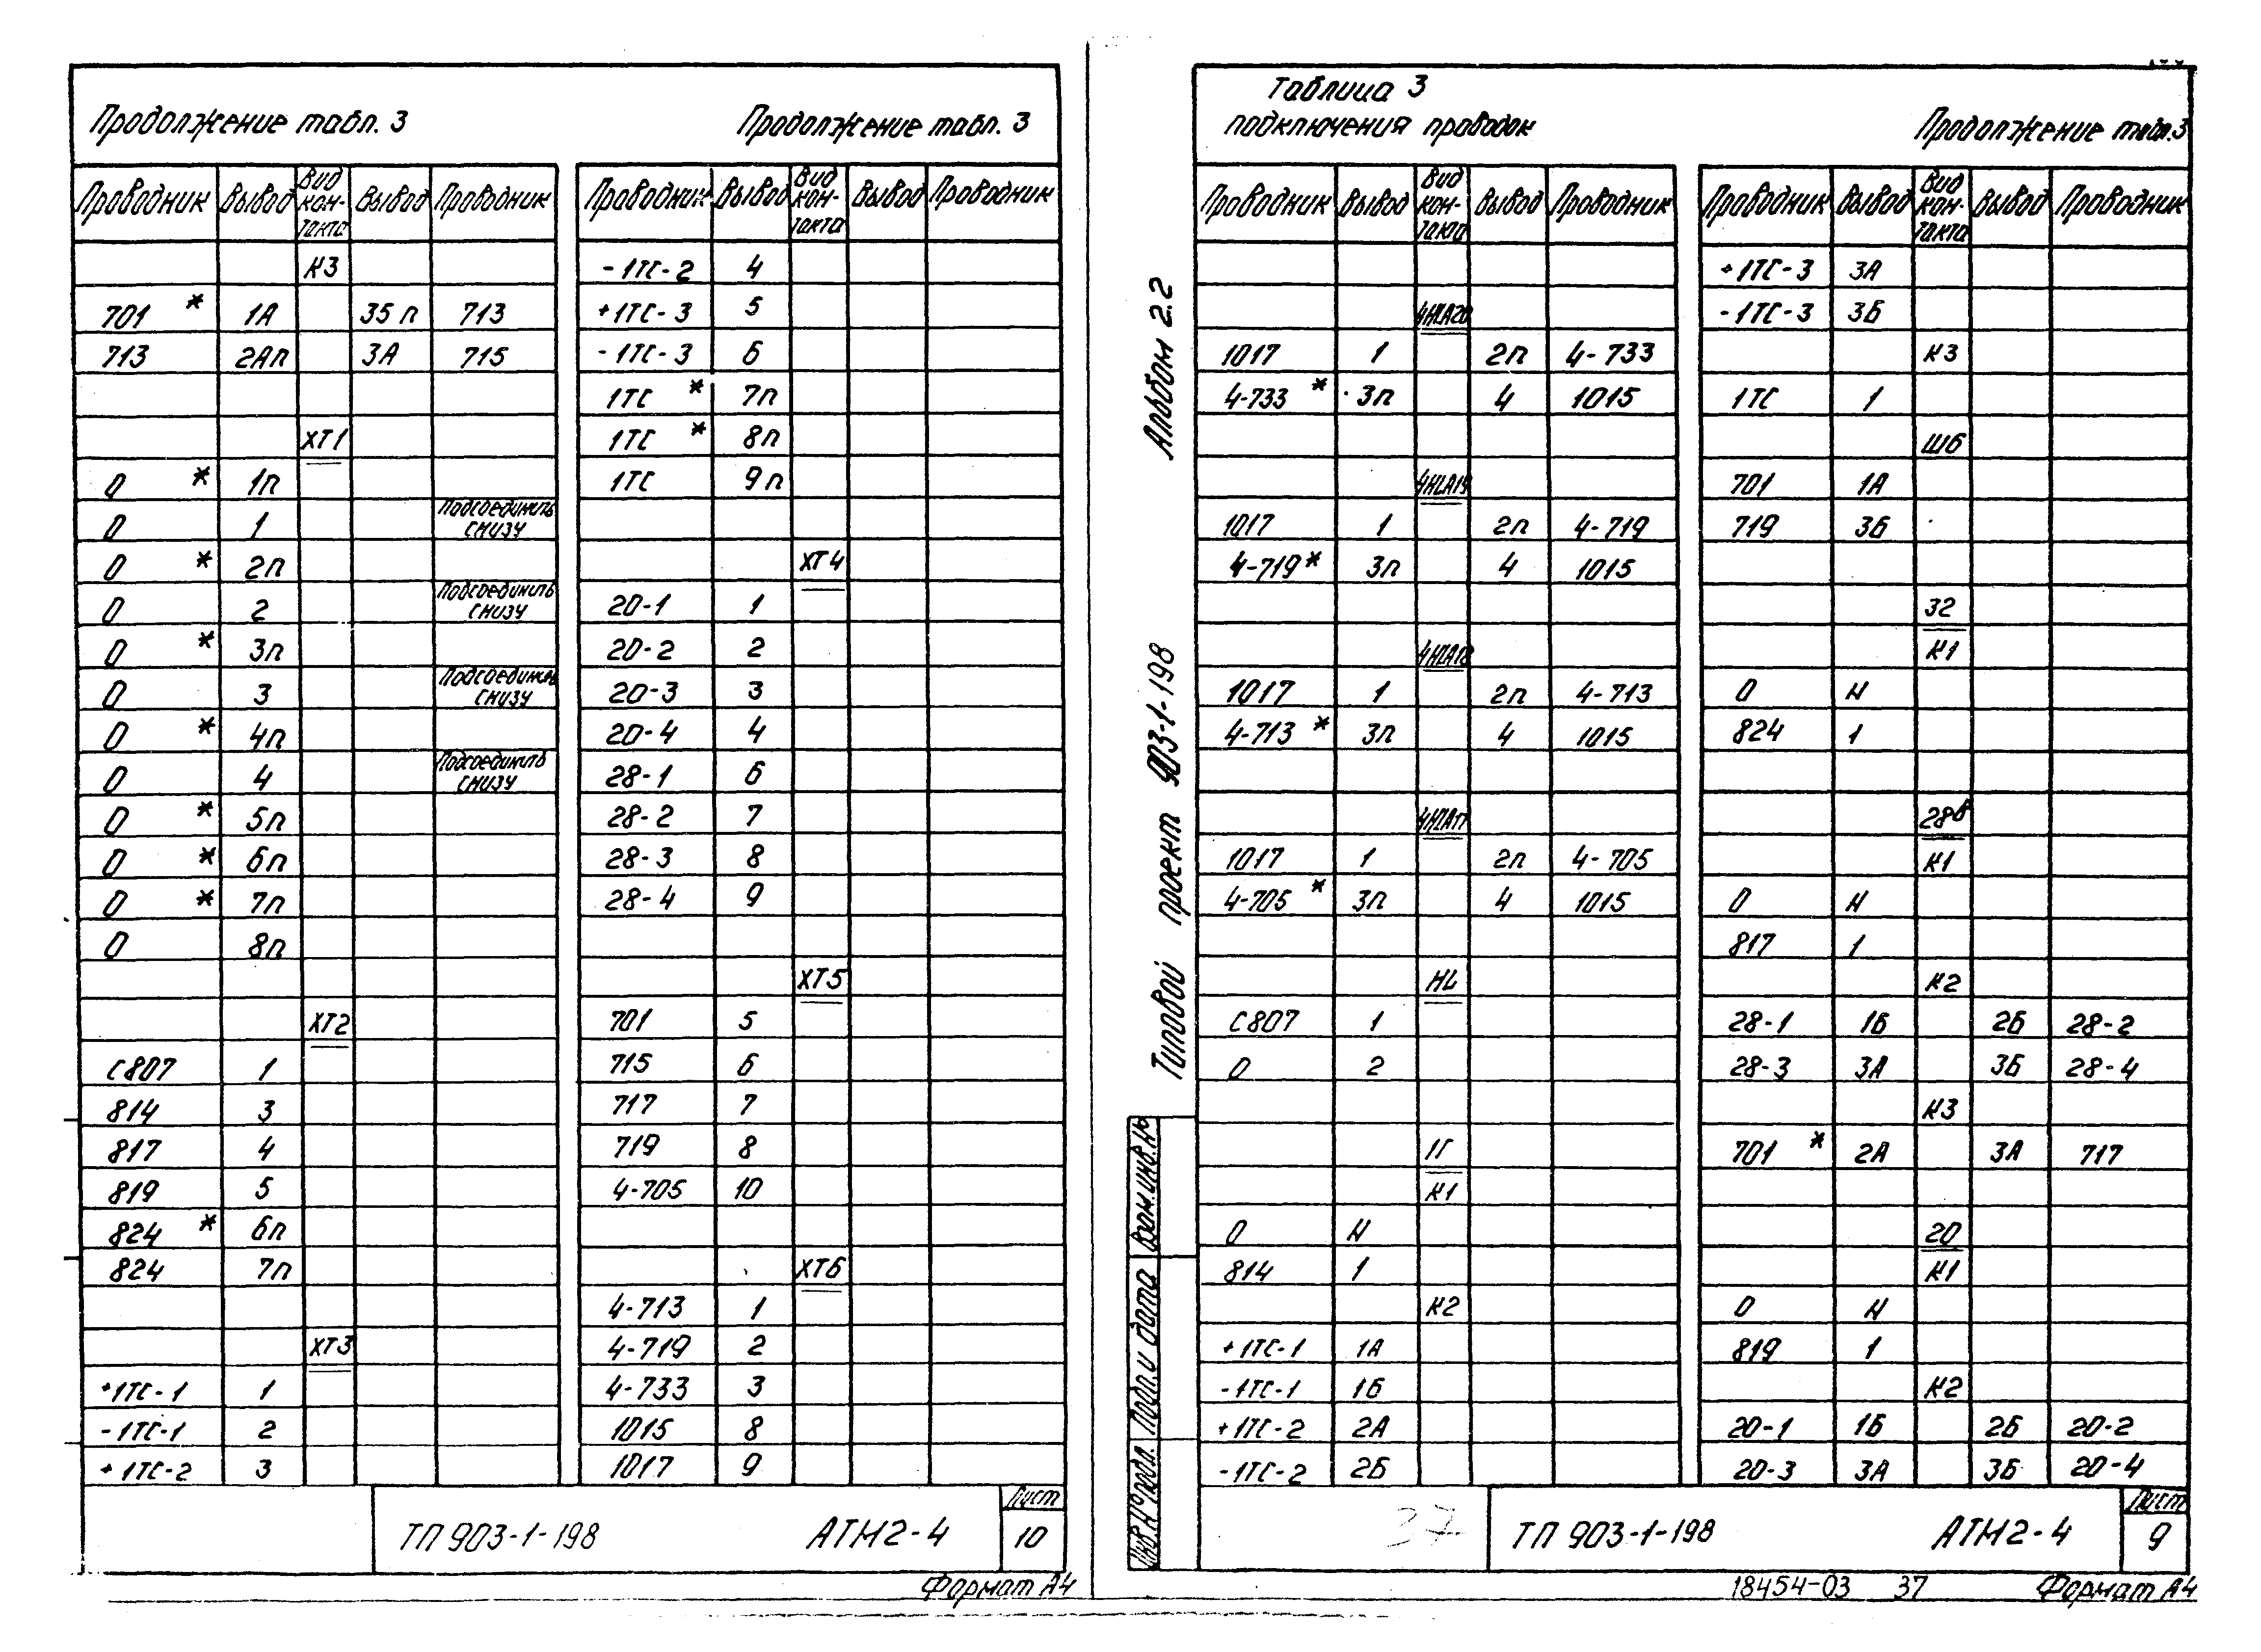 Продолжение табл. 3
Проводник Вывод Вид контакта Вывод Проводник
К3
701 * 1А 35п 713
713 2Ап 3А 715
ХТ1
0 * 1п
0 1 Подсоединить снизу
0 * 2п
0 2 Подсоединить снизу
0 * 3п
0 3 Подсоединить снизу
0 * 4п
0 4 Подсоединить снизу
0 * 5п
0 * 6п
0 * 7п
0 8п
ХТ2
С807 1
814 3
817 4
819 5
824 * 6п
824 7п
ХТ3
+1ТС-1 1
-1ТС-1 2
+1ТС-2 3
Продолжение табл. 3
Проводник Вывод Вид контакта Вывод Проводник
-1ТС-2 4
+1ТС-3 5
-1ТС-3 6
1ТС * 7п
1ТС * 8п
1ТС 9п
ХТ4
20-1 1
20-2 2
20-3 3
20-4 4
28-1 6
28-2 7
28-3 8
28-4 9
ХТ5
701 5
715 6
717 7
719 8
4-705 10
ХТ6
4-713 1
4-719 2
4-733 3
1015 8
1017 9
ТП 903-1-198 АТМ2-4
Лист
10
Формат А4
Альбом 2.2
Типовой проект 903-1-198
Взам.инв.№
Подп. и дата
Инв.№ подл.
Таблица 3
подключения проводок
Проводник Вывод Вид контакта Вывод Проводник
4HLA20
1017 1 2п 4-733
4-733 * 3п 4 1015
4HLA19
1017 1 2п 4-719
4-719 * 3п 4 1015
4HLA18
1017 1 2п 4-713
4-713 * 3п 4 1015
4HLA17
1017 1 2п 4-705
4-705 * 3п 4 1015
HL
С807 1
0 2
1Г
К1
0 Н
814 1
К2
+1ТС-1 1А
-1ТС-1 1Б
+1ТС-2 2А
-1ТС-2 2Б
Продолжение табл. 3
Проводник Вывод Вид контакта Вывод Проводник
+1ТС-3 3А
-1ТС-3 3Б
К3
1ТС 1
Ш6
701 1А
719 3Б
32
К1
0 Н
824 1
28в
К1
0 Н
817 1
К2
28-1 1Б 2Б 28-2
28-3 3А 3Б 28-4
К3
701 * 2А 3А 717
20
К1
0 Н
819 1
К2
20-1 1Б 2Б 20-2
20-3 3А 3Б 20-4
37
ТП 903-1-198 АТМ2-4
Лист
9
18454-03 37 Формат А4